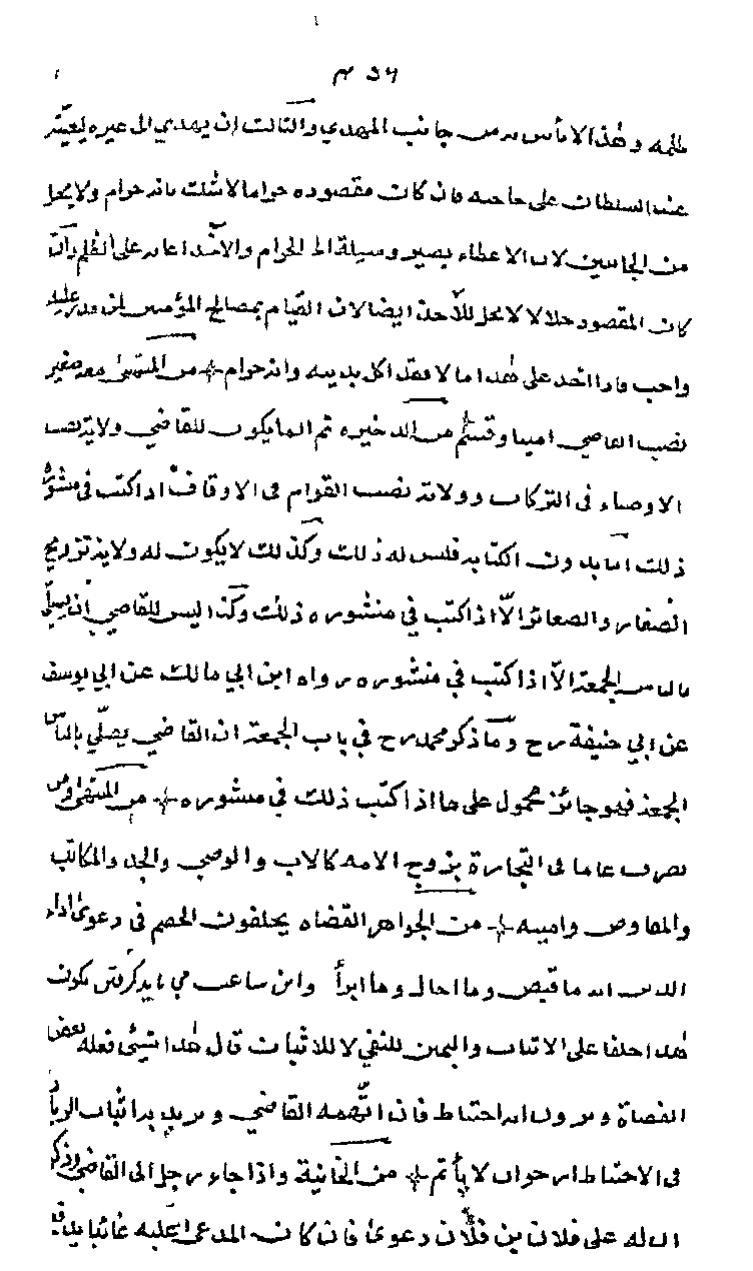 ظلمه وهذا لا بأس به من جانب المهدي والثالث ان يهدي الى غيره ليعينه
عند السلطان على حاجته فان كان مقصوده حراما لاشك بانه حرام ولا يحل
من الجانبين لان الاعطاء يصير وسيلة الى الحرام والاخذ اعانه على الظلم وان
كان المقصود حلالا لا يحل للآخذ ايضا لان القيام بمصالح المؤمنين لمن قدر عليه
واجب فاذا اخذ على هذا مالا فقد اكل بدينه وانه حرام من المنتقى
نصب القاضي امينا وقسم من الذخيره ثم انما يكون للقاضي ولاية نصب
الاوصياء فى التركات وولاية نصب القوام فى الاوقاف اذا كتب في منشوره
ذلك اما بدون الكتابه فليس له ذلك وكذلك لا يكون له ولاية تزويج
الصغار والصغائر الّا اذا كتب في منشوره ذلك وكذا ليس للقاضي ان يصلّي
بالناس الجمعة الّا اذا كتب في منشوره رواه ابن ابي مالك عن ابي يوسف
عن ابي حنيفة رح وما ذكر محمد رح في باب الجمعة ان القاضي يصلّي بالناس
الجمعة فهو جائز محمول على ما اذا كتب ذلك في منشوره من المنتقى
تصرف عاما فى التجارة يزوج الامه كالاب والوصي والجد والمكاتب
والمفاوض وامينه من الجواهر القضاه يحلفون الخصم فى دعوى اداء
الدين انه ما قبض وما احال وما ابرأ
هذا حلفا على الاثبات واليمين للنفي لا للاثبات قال هذا شيئ فعله بعض
القضاة ويرون انه احتياط فان اتّهمه القاضي و
فى الاحتياط ارجوان لا يأثم من الخانية واذا جاء رجل الى القاضي وذكر
ان له على فلان بن فلان دعوى فان كان المدعى عليه غائبا